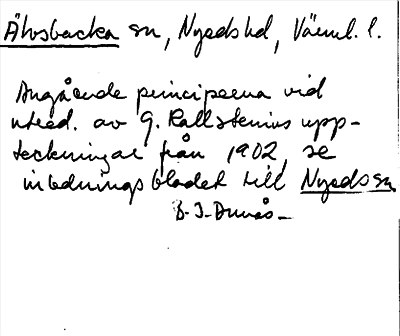 Älvsbacka sn, Nyeds hd, Värml. l.
Angående principerna vid
utred. av G. Kallstenius upp-
teckningar från 1902, se
inledningsbladet till Nyeds sn
B-I-Dunås-